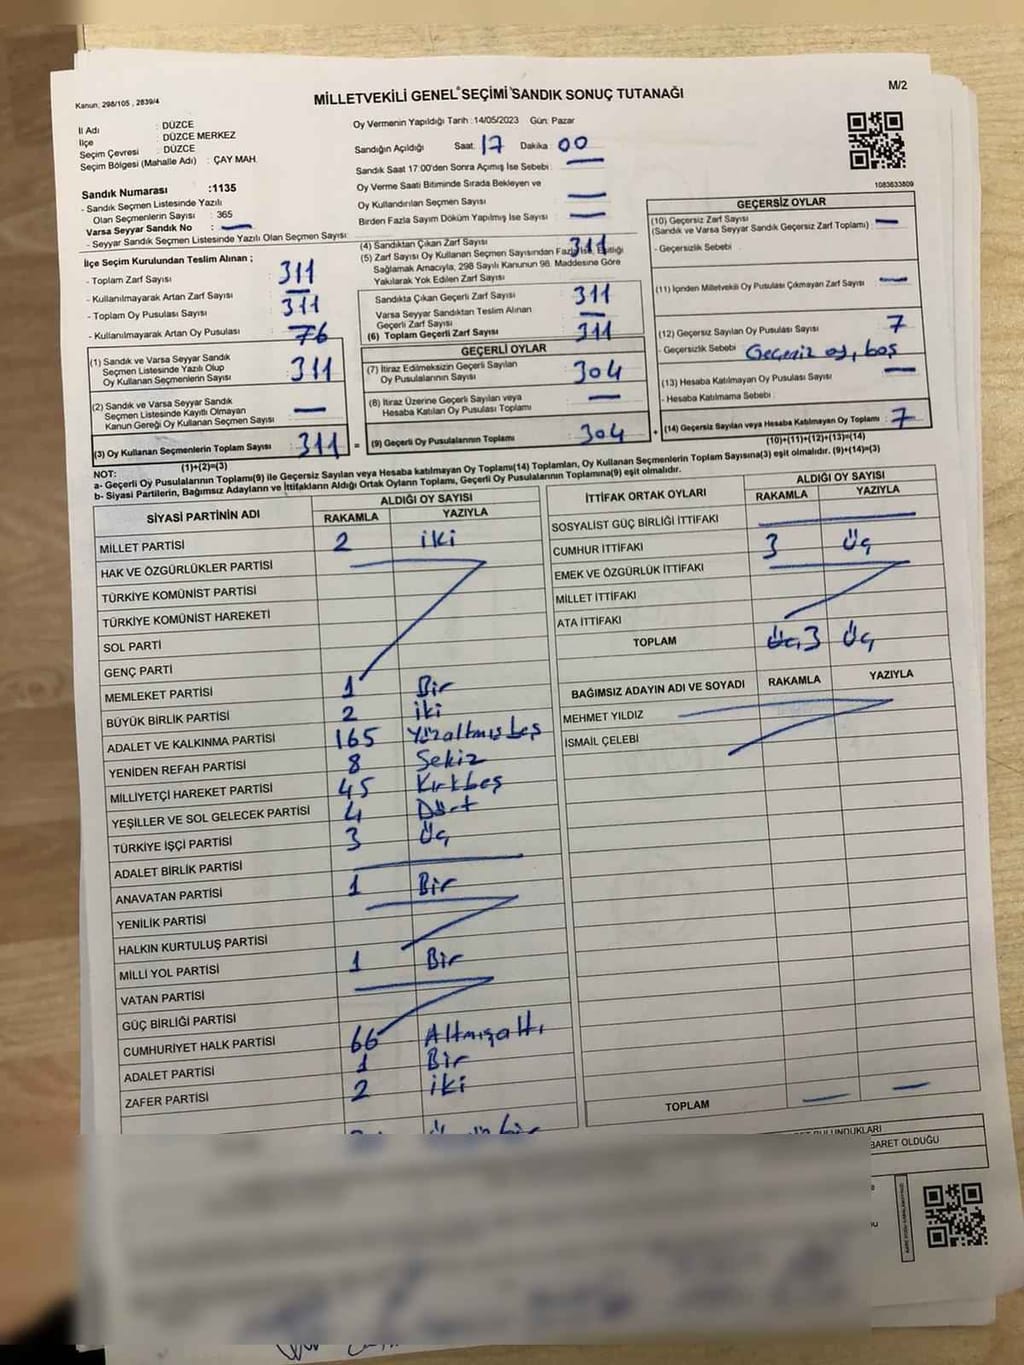 Kanun: 298/105 , 2839/4
MİLLETVEKİLİ GENEL SEÇİMİ SANDIK SONUÇ TUTANAĞI
M/2
İl Adı : DÜZCE
İlçe : DÜZCE MERKEZ
Seçim Çevresi : DÜZCE
Seçim Bölgesi (Mahalle Adı) : ÇAY MAH.
Sandık Numarası :1135
- Sandık Seçmen Listesinde Yazılı
Olan Seçmenlerin Sayısı : 365
Varsa Seyyar Sandık No : —
- Seyyar Sandık Seçmen Listesinde Yazılı Olan Seçmen Sayısı:
Oy Vermenin Yapıldığı Tarih :14/05/2023 Gün: Pazar
Sandığın Açıldığı Saat: 17 Dakika: 00
Sandık Saat 17:00'den Sonra Açımış İse Sebebi : —
Oy Verme Saati Bitiminde Sırada Bekleyen ve
Oy Kullandırılan Seçmen Sayısı —
Birden Fazla Sayım Döküm Yapılmış İse Sayısı —
1083633809
İlçe Seçim Kurulundan Teslim Alınan ;
- Toplam Zarf Sayısı 311
- Kullanılmayarak Artan Zarf Sayısı —
- Toplam Oy Pusulası Sayısı 311
- Kullanılmayarak Artan Oy Pusulası 76
(1) Sandık ve Varsa Seyyar Sandık
Seçmen Listesinde Yazılı Olup
Oy Kullanan Seçmenlerin Sayısı 311
(2) Sandık ve Varsa Seyyar Sandık
Seçmen Listesinde Kayıtlı Olmayan
Kanun Gereği Oy Kullanan Seçmen Sayısı —
(3) Oy Kullanan Seçmenlerin Toplam Sayısı : 311 =
(1)+(2)=(3)
(4) Sandıktan Çıkan Zarf Sayısı 311
(5) Zarf Sayısı Oy Kullanan Seçmen Sayısından Fazla İse, Eşitliği
Sağlamak Amacıyla, 298 Sayılı Kanunun 98. Maddesine Göre
Yakılarak Yok Edilen Zarf Sayısı
Sandıkta Çıkan Geçerli Zarf Sayısı 311
Varsa Seyyar Sandıktan Teslim Alınan
Geçerli Zarf Sayısı —
(6) Toplam Geçerli Zarf Sayısı 311
GEÇERLİ OYLAR
(7) İtiraz Edilmeksizin Geçerli Sayılan
Oy Pusulalarının Sayısı 304
(8) İtiraz Üzerine Geçerli Sayılan veya
Hesaba Katılan Oy Pusulası Toplamı —
(9) Geçerli Oy Pusulalarının Toplamı 304 +
GEÇERSİZ OYLAR
(10) Geçersiz Zarf Sayısı
(Sandık ve Varsa Seyyar Sandık Geçersiz Zarf Toplamı) : —
- Geçersizlik Sebebi
(11) İçinden Milletvekili Oy Pusulası Çıkmayan Zarf Sayısı —
(12) Geçersiz Sayılan Oy Pusulası Sayısı : 7
- Geçersizlik Sebebi : Geçersiz oy, boş
(13) Hesaba Katılmayan Oy Pusulası Sayısı —
- Hesaba Katılmama Sebebi :
(14) Geçersiz Sayılan veya Hesaba Katılmayan Oy Toplamı : 7
(10)+(11)+(12)+(13)=(14)
NOT:
a- Geçerli Oy Pusulalarının Toplamı(9) ile Geçersiz Sayılan veya Hesaba katılmayan Oy Toplamı(14) Toplamları, Oy Kullanan Seçmenlerin Toplam Sayısına(3) eşit olmalıdır. (9)+(14)=(3)
b- Siyasi Partilerin, Bağımsız Adayların ve İttifakların Aldığı Ortak Oyların Toplamı, Geçerli Oy Pusulalarının Toplamına(9) eşit olmalıdır.
SİYASİ PARTİNİN ADI
ALDIĞI OY SAYISI
RAKAMLA YAZIYLA
MİLLET PARTİSİ 2 iki
HAK VE ÖZGÜRLÜKLER PARTİSİ
TÜRKİYE KOMÜNİST PARTİSİ
TÜRKİYE KOMÜNİST HAREKETİ
SOL PARTİ
GENÇ PARTİ
MEMLEKET PARTİSİ 1 Bir
BÜYÜK BİRLİK PARTİSİ 2 iki
ADALET VE KALKINMA PARTİSİ 165 Yüzaltmışbeş
YENİDEN REFAH PARTİSİ 8 Sekiz
MİLLİYETÇİ HAREKET PARTİSİ 45 Kırkbeş
YEŞİLLER VE SOL GELECEK PARTİSİ 4 Dört
TÜRKİYE İŞÇİ PARTİSİ 3 Üç
ADALET BİRLİK PARTİSİ
ANAVATAN PARTİSİ 1 Bir
YENİLİK PARTİSİ
HALKIN KURTULUŞ PARTİSİ
MİLLİ YOL PARTİSİ 1 Bir
VATAN PARTİSİ
GÜÇ BİRLİĞİ PARTİSİ
CUMHURİYET HALK PARTİSİ 66 Altmışaltı
ADALET PARTİSİ 1 Bir
ZAFER PARTİSİ 2 iki
İTTİFAK ORTAK OYLARI
ALDIĞI OY SAYISI
RAKAMLA YAZIYLA
SOSYALİST GÜÇ BİRLİĞİ İTTİFAKI
CUMHUR İTTİFAKI 3 Üç
EMEK VE ÖZGÜRLÜK İTTİFAKI
MİLLET İTTİFAKI
ATA İTTİFAKI
TOPLAM Üç 3 Üç
BAĞIMSIZ ADAYIN ADI VE SOYADI RAKAMLA YAZIYLA
MEHMET YILDIZ
İSMAİL ÇELEBİ
TOPLAM — —
BULUNDUKLARI
BARET OLDUĞU